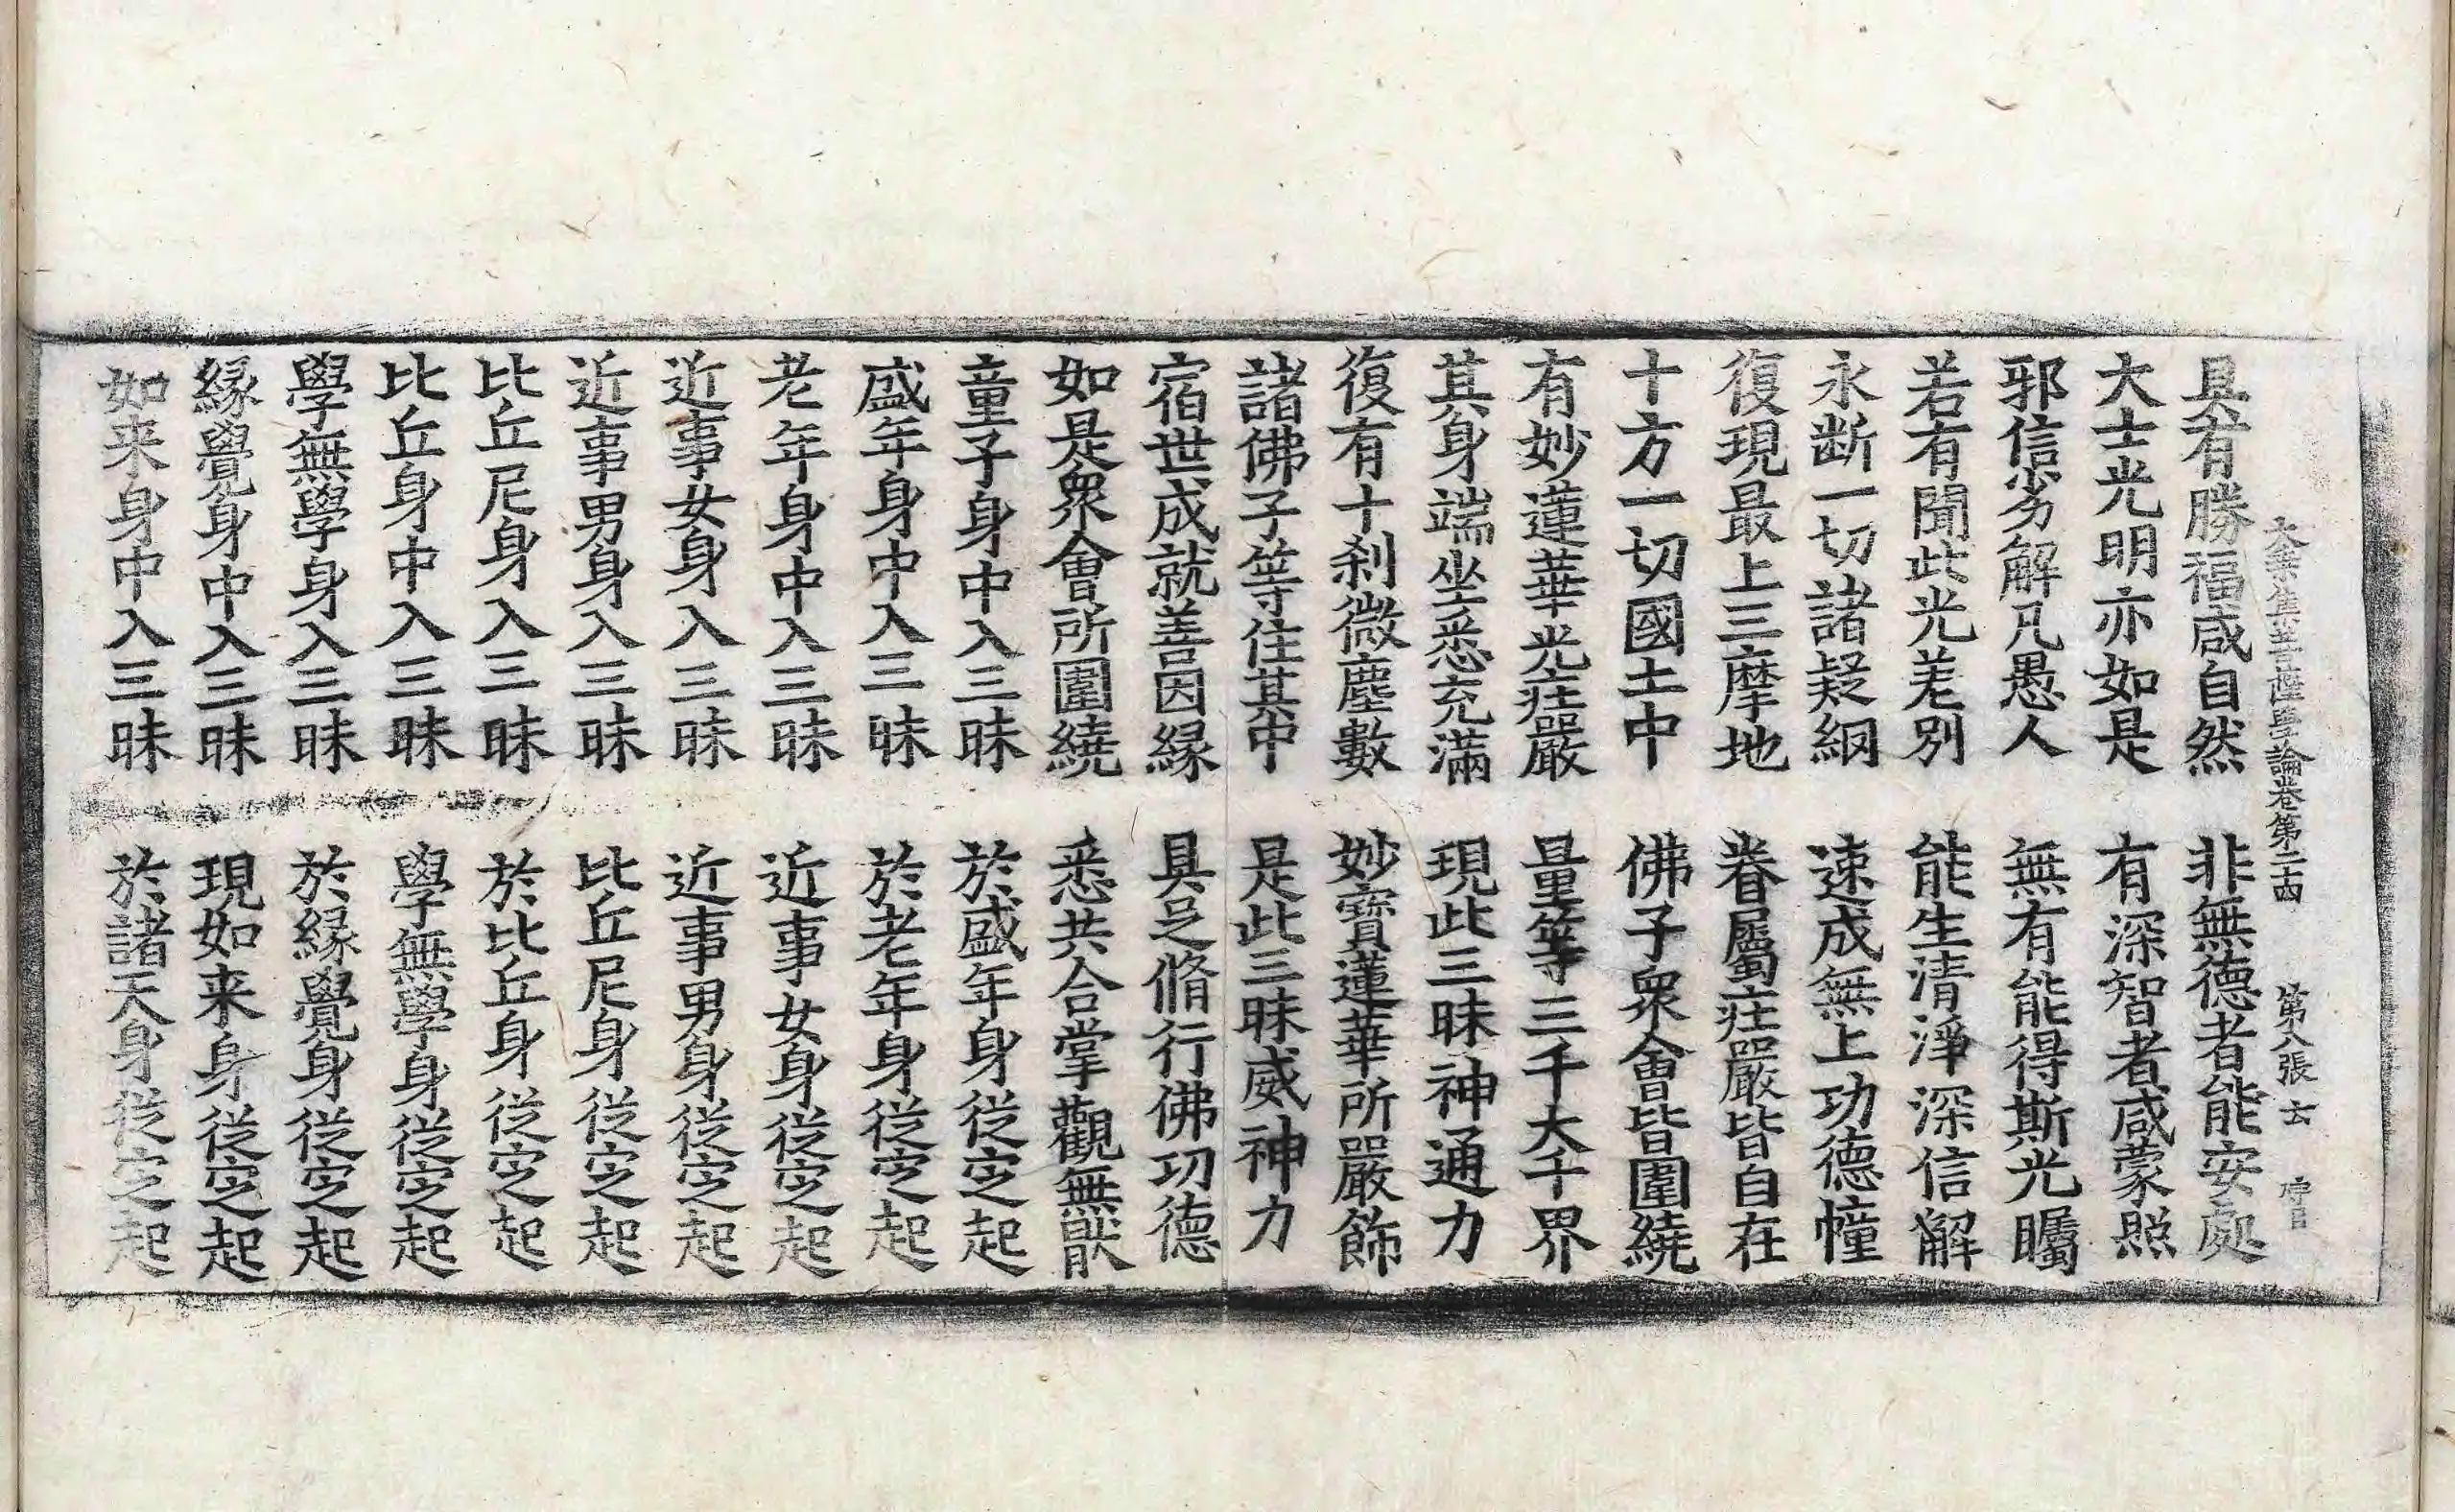 大乘集菩薩學論卷第二十四 第八張 云
具有勝福咸自然 非無德者能安處
大士光明亦如是 有深智者咸蒙照
邪信劣解凡愚人 無有能得斯光矚
若有聞此光差別 能生清淨深信解
永断一切諸疑網 速成無上功德幢
復現最上三摩地 眷屬莊嚴皆自在
十方一切國土中 佛子衆會皆圍繞
有妙蓮華光莊嚴 量等三千大千界
其身端坐悉充滿 現此三昧神通力
復有十刹微塵數 妙寶蓮華所嚴飾
諸佛子等住其中 是此三昧威神力
宿世成就善因緣 具足脩行佛功德
如是衆會所圍繞 悉共合掌觀無厭
童子身中入三昧 於盛年身從定起
盛年身中入三昧 於老年身從定起
老年身中入三昧 近事女身從定起
近事女身入三昧 近事男身從定起
近事男身入三昧 比丘尼身從定起
比丘尼身入三昧 於比丘身從定起
比丘身中入三昧 學無學身從定起
學無學身入三昧 於緣覺身從定起
緣覺身中入三昧 現如来身從定起
如来身中入三昧 於諸天身從定起